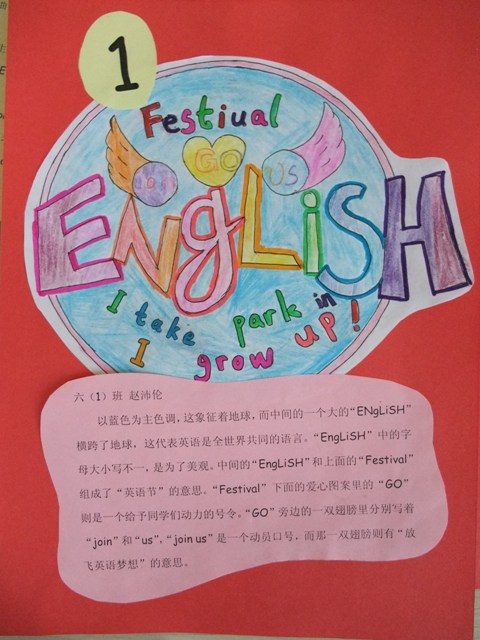 1
Festiual
join GO US
ENgLiSH
I take park in
I grow up!
六（1）班 赵沛伦
以蓝色为主色调，这象征着地球，而中间的一个大的“ENgLiSH”
横跨了地球，这代表英语是全世界共同的语言。“EngLiSH”中的字
母大小写不一，是为了美观。中间的“EngLiSH”和上面的“Festival”
组成了“英语节”的意思。“Festival”下面的爱心图案里的“GO”
则是一个给予同学们动力的号令。“GO”旁边的一双翅膀里分别写着
“join”和“us”，“join us”是一个动员口号，而那一双翅膀则有“放
飞英语梦想”的意思。